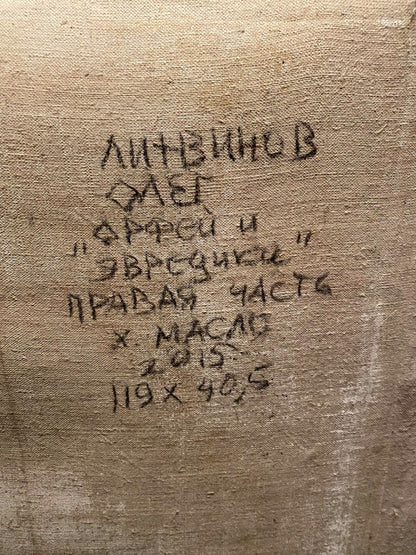 ЛИТВИНОВ
ОЛЕГ
„ОРФЕЙ И
ЭВРЕДИКИ"
ПРАВАЯ ЧАСТЬ
Х. МАСЛО
2015
119 х 40,5